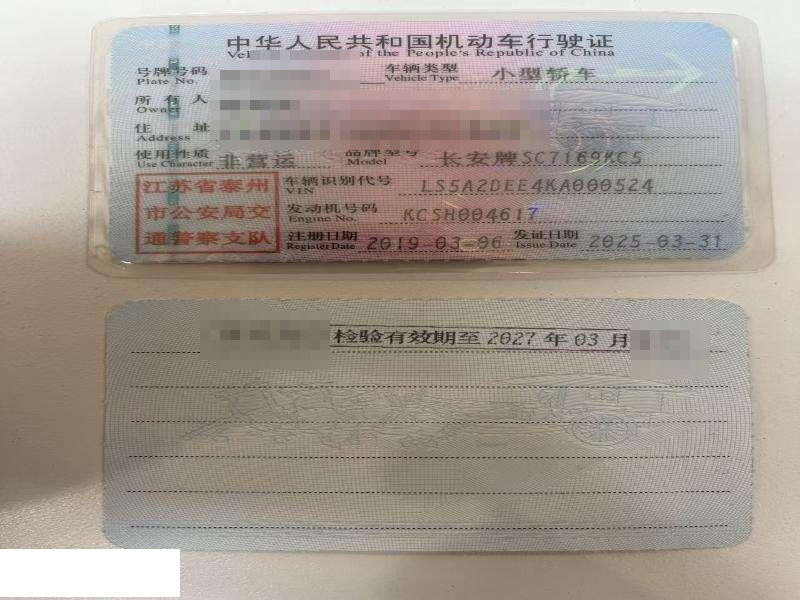 中华人民共和国机动车行驶证
of the People's Republic of China
号牌号码 车辆类型 小型轿车
Plate No. Vehicle Type
所有人
Owner
住址
Address
使用性质 非营运 品牌型号 长安牌SC7169KC5
Use Character Model
江苏省泰州
市公安局交
通警察支队
车辆识别代号 LS5A2DEE4KA000524
VIN
发动机号码 KCSH004617
Engine No.
注册日期 2019-03-06 发证日期 2025-03-31
Register Date Issue Date
检验有效期至 2027 年 03 月